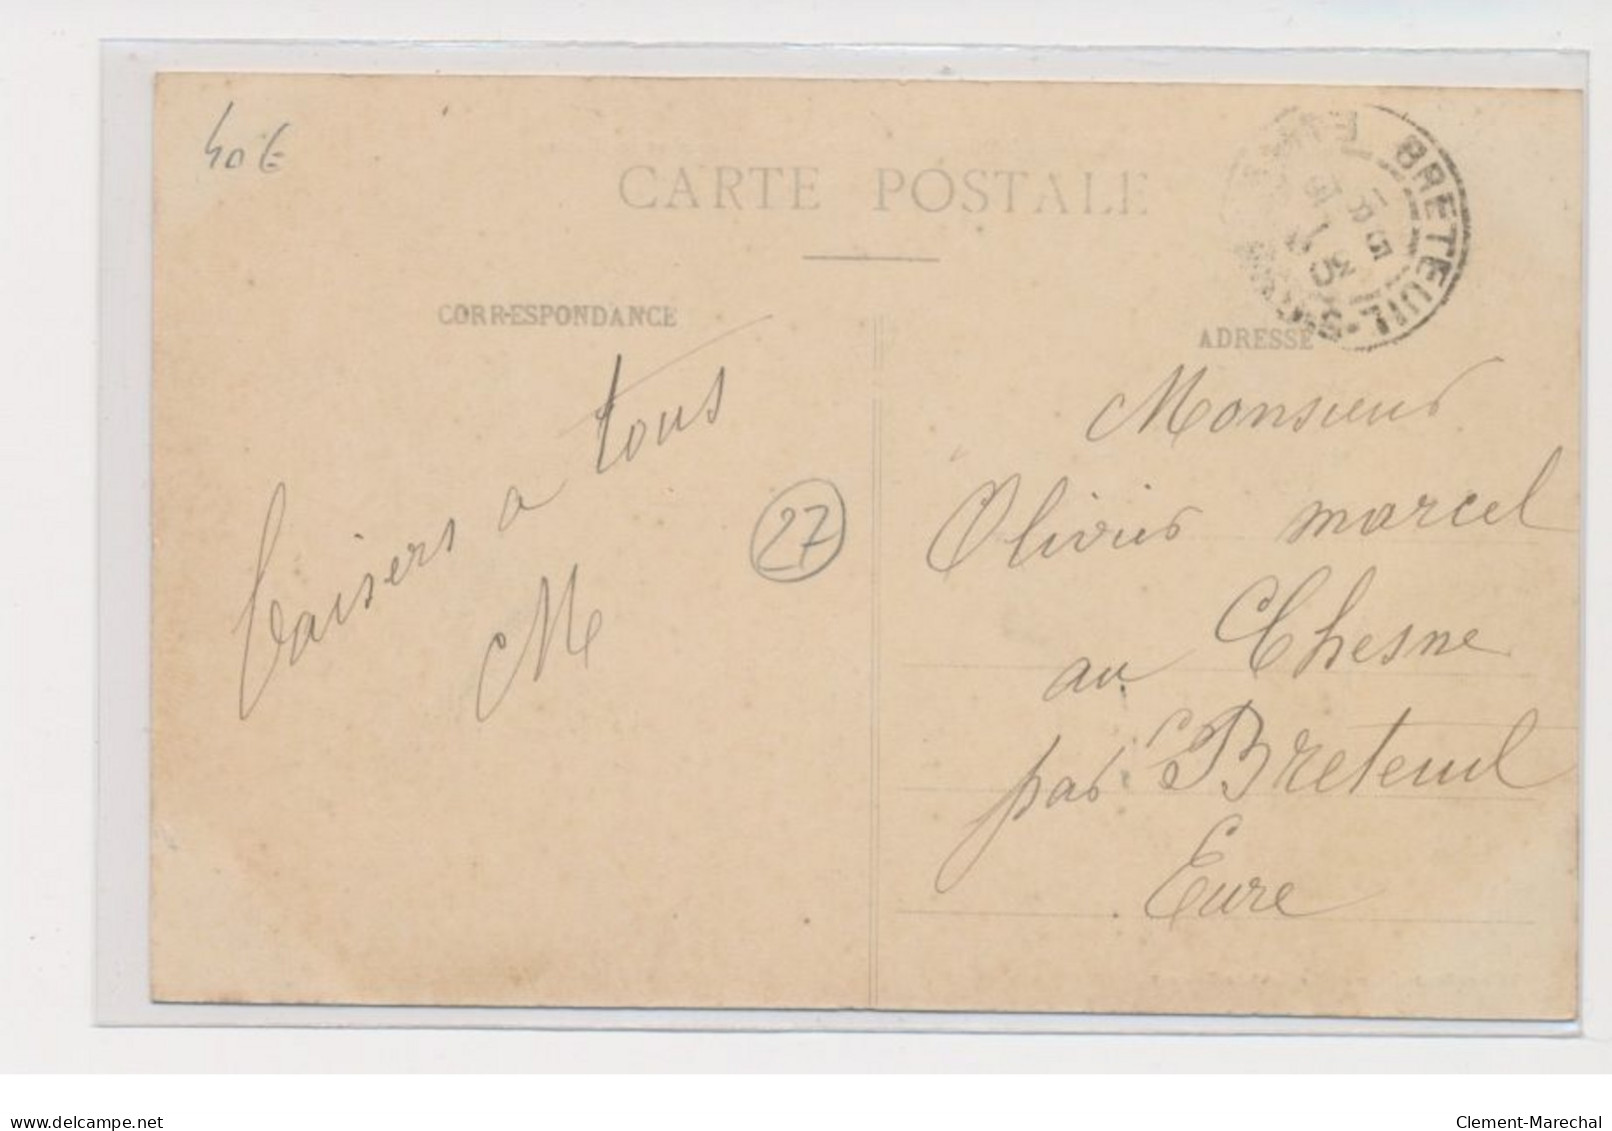 40€
CARTE POSTALE
BRETEUIL-S
CORRESPONDANCE
ADRESSE
baisers a tous
M
27
Monsieur
Olivier marcel
au Chesne
par Breteuil
Eure
www.delcampe.net
Clement-Marechal